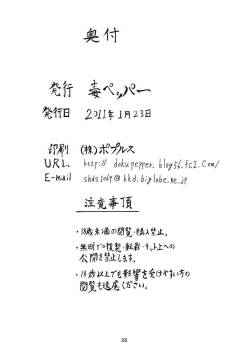 奥付
発行 毒ペッパー
発行日 2011年1月23日
印刷 (株)ポプルス
URL http://dokupepper.blog56.fc2.com/
E-mail shds1069@hkd.biglobe.ne.jp
注意事頂
・18歳未満の閲覧・購入禁止。
・無断での複製・転載・ネット上への
公開を禁止します。
・18歳以上でも影響を受けやすい方の
閲覧も遠慮ください。
26